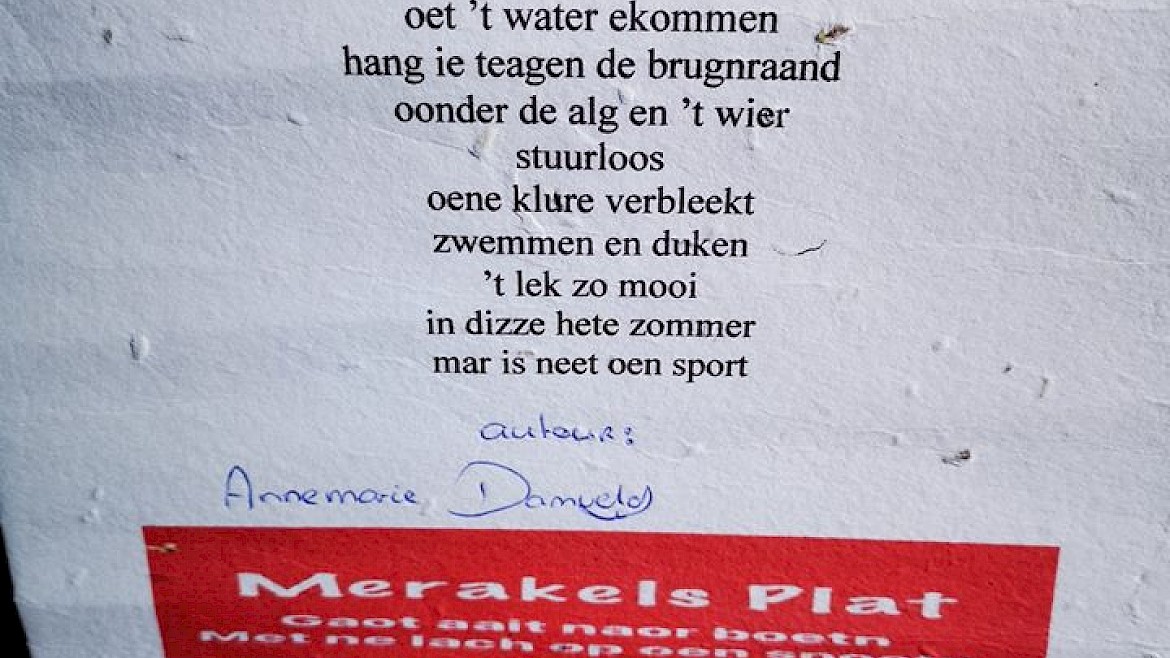 oet ’t water ekommen
hang ie teagen de brugnraand
oonder de alg en ’t wier
stuurloos
oene klure verbleekt
zwemmen en duken
’t lek zo mooi
in dizze hete zommer
mar is neet oen sport
auteur:
Annemarie Damveld
Merakels Plat
Gaot aait naor boetn
Met ne lach op een